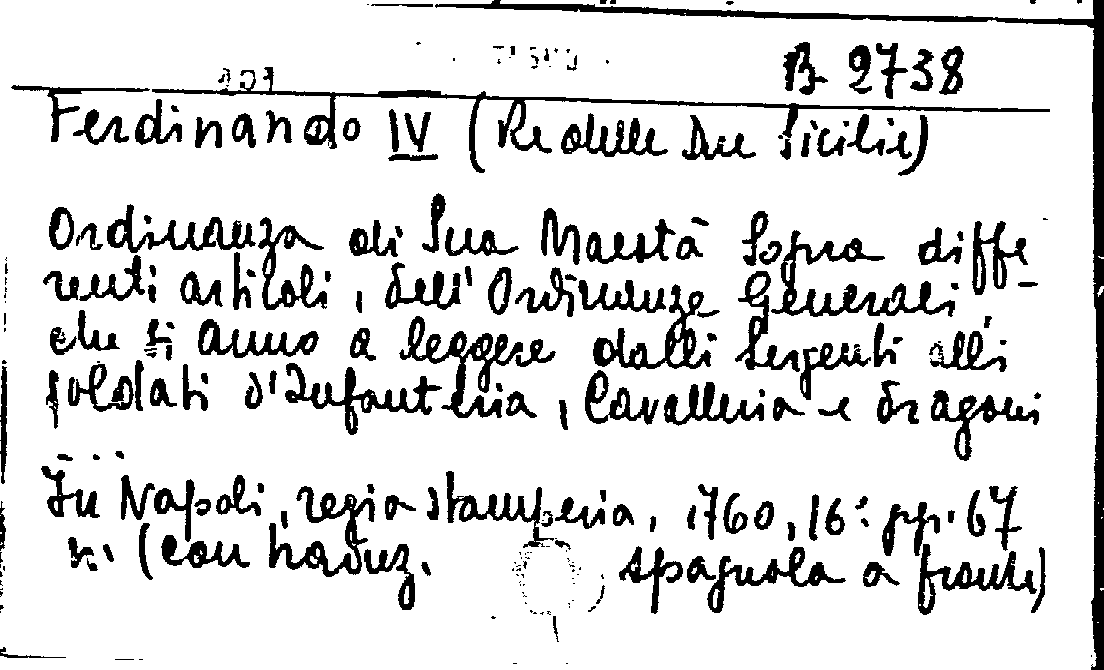 B 2738
Ferdinando IV (Re delle Due Sicilie)
Ordinanza di Sua Maestà Sopra diffe
renti articoli, dell'Ordinanze Generali,
che si anno a leggere dalli Sergenti alli
soldati d'Infanteria, Cavalleria e dragoni
...
In Napoli, regia stamperia, 1760, 16° pp. 67
n. (con traduz. spagnola a fronte)